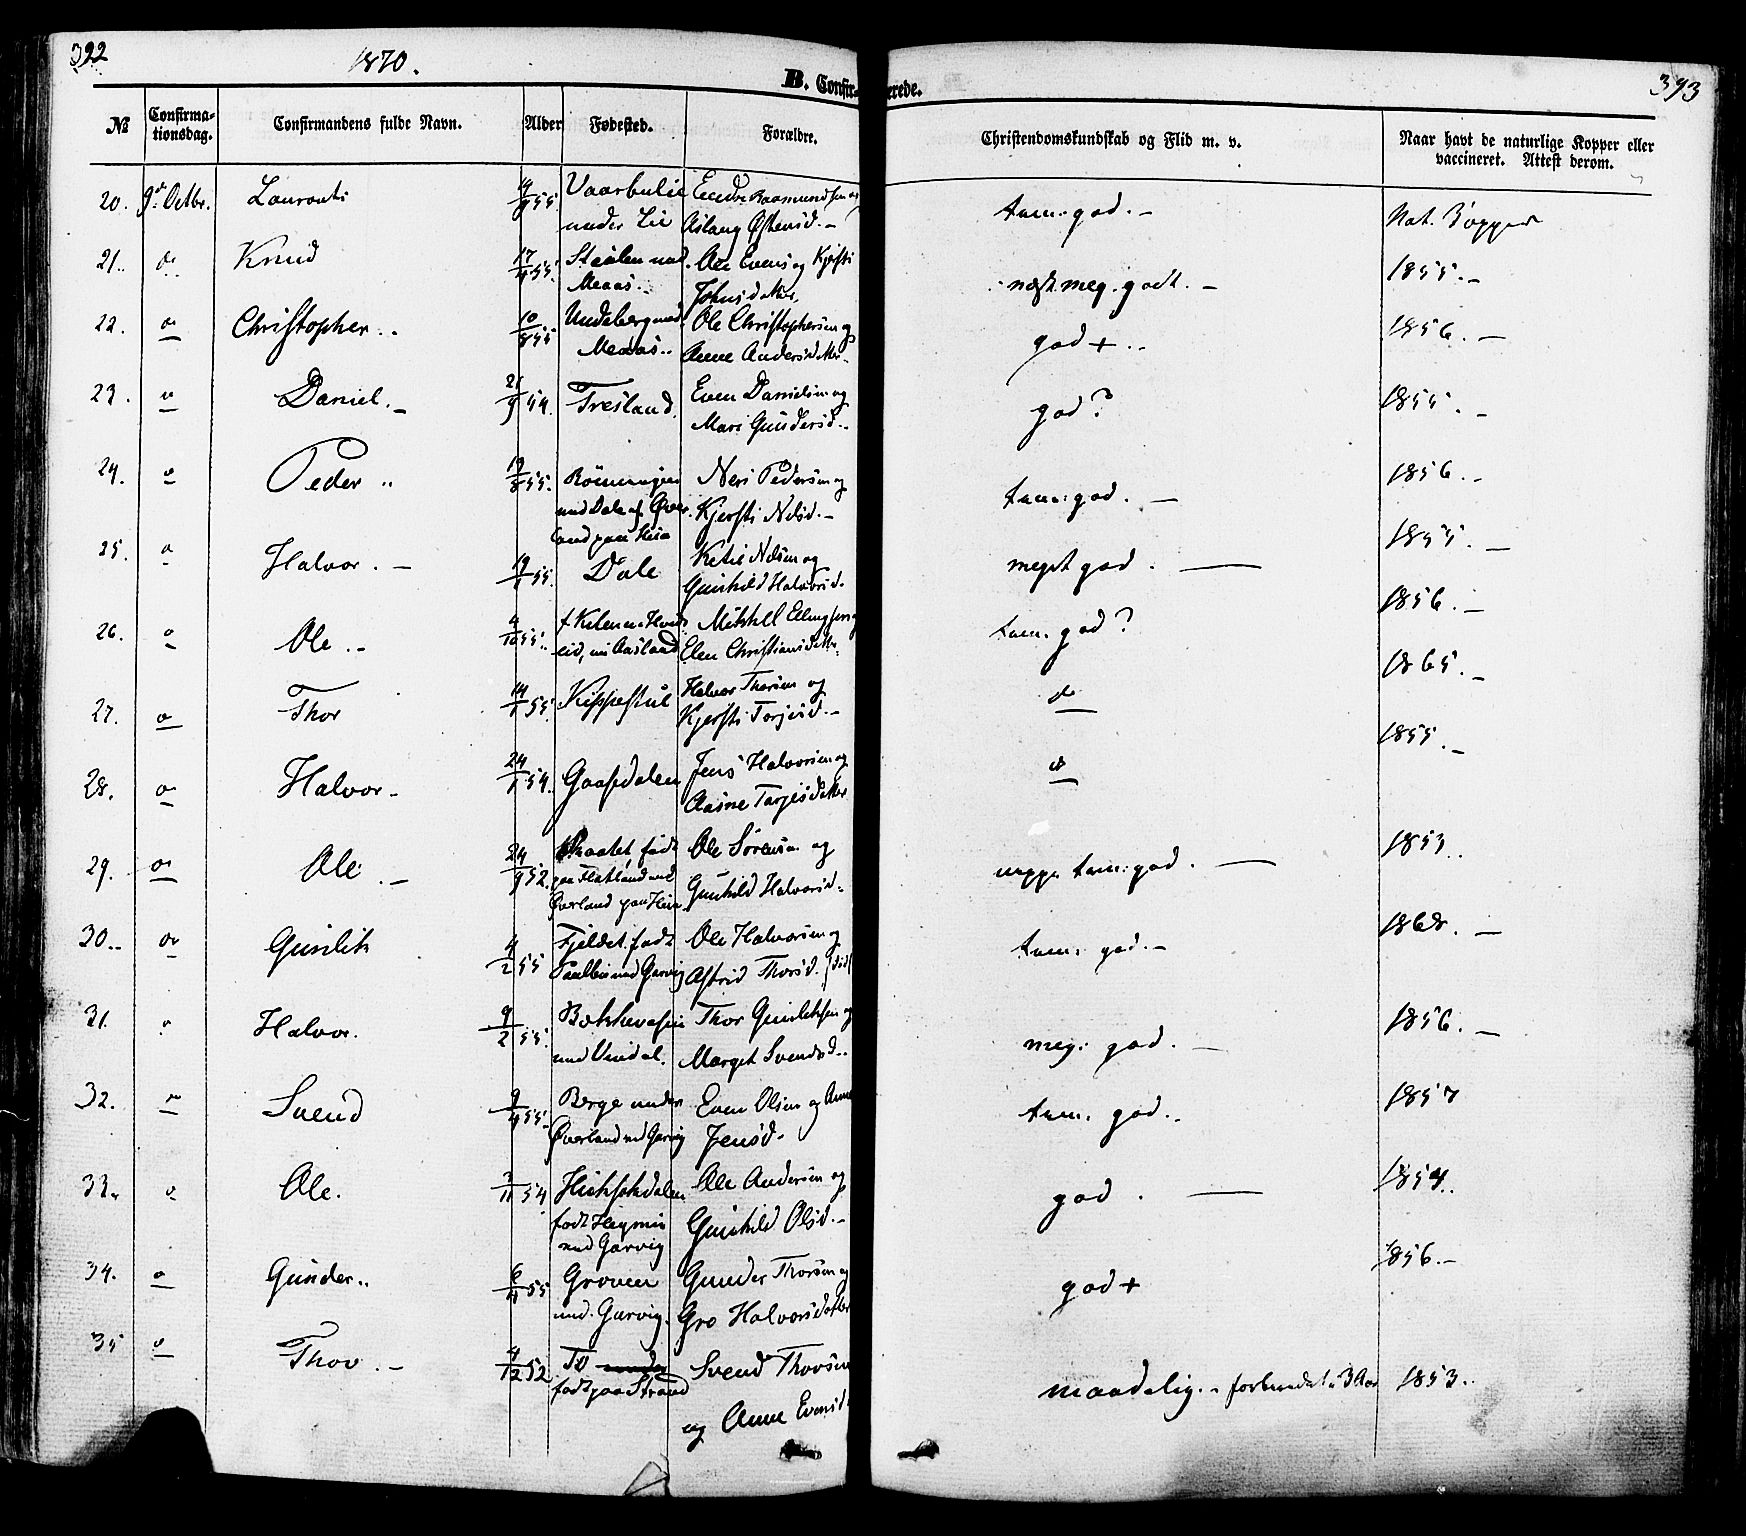 322
1870.
B. Confir-
erede.
393
№
Confirma-
tionsdag.
Confirmandens fulde Navn.
Alder
Fødested.
Forældre.
Christendomskundskab og Flid m. v.
Naar havt de naturlige Kopper eller
vaccineret. Attest derom.
20. 9de Octbr. 14/9 55. under Lie Aslaug Østensd. – tem: god. – Nat. Kopper
21. do Knud 17/9 55. Meaas. Ole Evens og Kjersti
Johnsdatter. næst. meg. godt. – 1855. –
22. do Christopher .. 10/8 55 Meaas.. Ole Christophersen og
Anne Andersdatter god + .. 1856. –
23. do Daniel. – 21/9 54. Tresland. Even Danielsen og
Mari Gundersd.. god? 1855. –
24. do Peder .. 55. Neri Pedersen og
Kjersti Nilsd. – tem: god. – 1856. –
25. do Halvor. – 55. Dale Ketil Nilsen og
Gunhild Halvorsd. meget god. — 1855. –
26. do Ole .. 4/10 55. Aasland Mikkel Ellingsen og
Elen Christiansdatter tem. god? 1856. –
27. do Thor 14/1 55. Kippestul Halvor Thorsen og
Kjersti Torjusd. – do 1865. –
28. do Halvor – 24/1 54. Gaasdalen Jens Halvorsen og
Aasne Tarjesdatter do 1855. –
29. do Ole. – 24/9 52. født
paa Flatland ved
Øverland paa Heia Ole Sørensen og
Gunhild Halvorsd. neppe tem: god. — 1853.
30. do Gunlik 4/2 55 Fjeldet, født
ved Garvig Ole Halvorsen og
Astrid Thorsd. tem. god. – 1868. –
31. do Halvor. 9/2 55. Thor Gunleksen og
Marget Svendsd.. meg: god. – 1856. –
32. do Svend 9/4 55. Berge under
Øverland ved Garvig Even Olsen og Anne
Jensd. tem. god. – 1857
33. do Ole. 3/11 54
født
ved Garvig Ole Andersen og
Gunhild Olsd. – god. — 1854..
34. do Gunder.. 6/4 55 Groven
ved. Garvig. Gunder Thorsen og
Gro Halvorsdatter god + 1856. –
35 do Thov. – 4/12 52 født paa Strand Svend Thovsen
og Anne Evensd. maadelig. – forberedt i 3 Aar 1853..